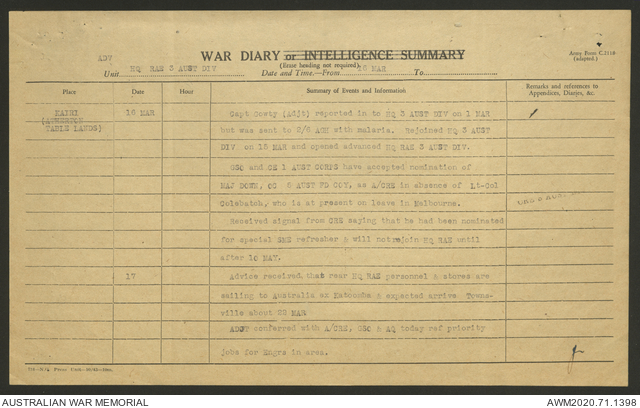 WAR DIARY or INTELLIGENCE SUMMARY
Army Form C.2118
(adapted.)
(Erase heading not required).
ADV
Unit HQ RAE 3 AUST DIV Date and Time.—From 16 MAR To
Place Date Hour Summary of Events and Information Remarks and references to Appendices, Diaries, &c.
KAIRI 16 MAR Capt Dowty (Adjt) reported in to HQ 3 AUST DIV on 1 MAR
(ATHERTON but was sent to 2/6 AGH with malaria. Rejoined HQ 3 AUST
TABLE LANDS) DIV on 16 MAR and opened advanced HQ RAE 3 AUST DIV.
GSO and CE 1 AUST CORPS have accepted nomination of
MAJ DOWN, OC AUST FD COY, as A/CRE in absence of Lt-Col
Colebatch, who is at present on leave in Melbourne.
Received signal from CRE saying that he had been nominated
for special SME refresher & will not rejoin HQ RAE until
after 10 MAY.
17 Advice received, that rear HQ RAE personnel & stores are
sailing to Australia ex & expected arrive Towns-
ville about 22 MAR
ADJT conferred with A/CRE, GSO & AQ today ref priority
jobs for Engrs in area.
AUSTRALIAN WAR MEMORIAL
AWM2020.71.1398